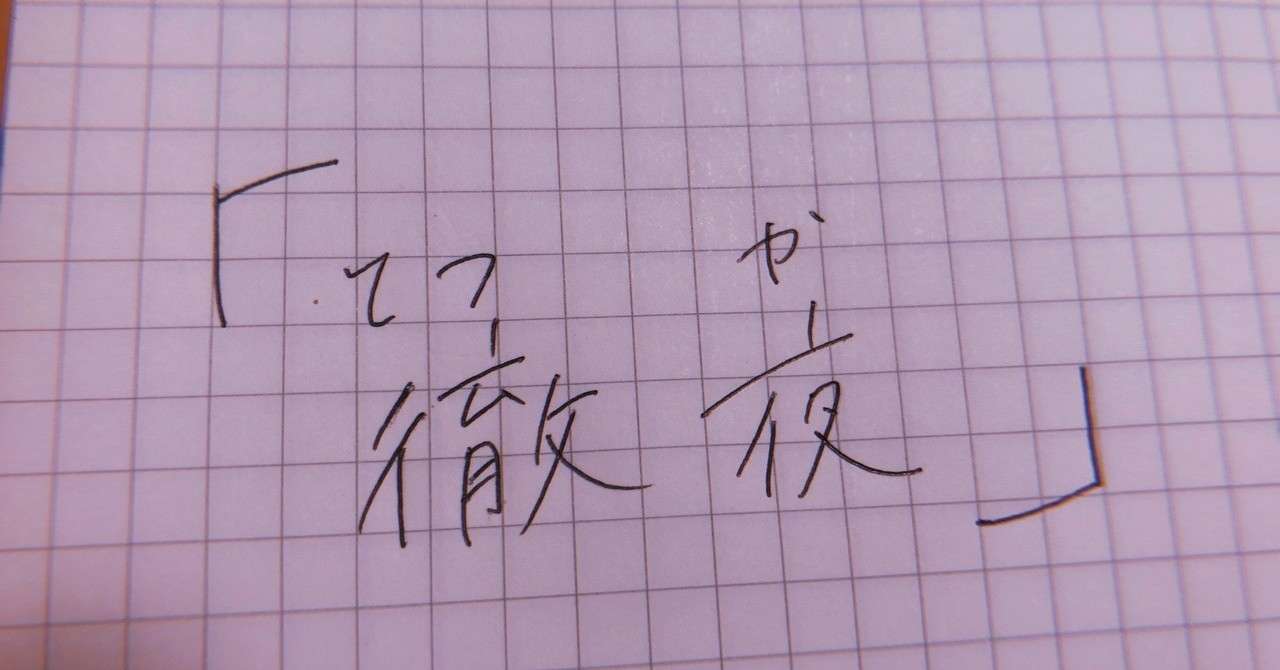 「てつや
徹夜」